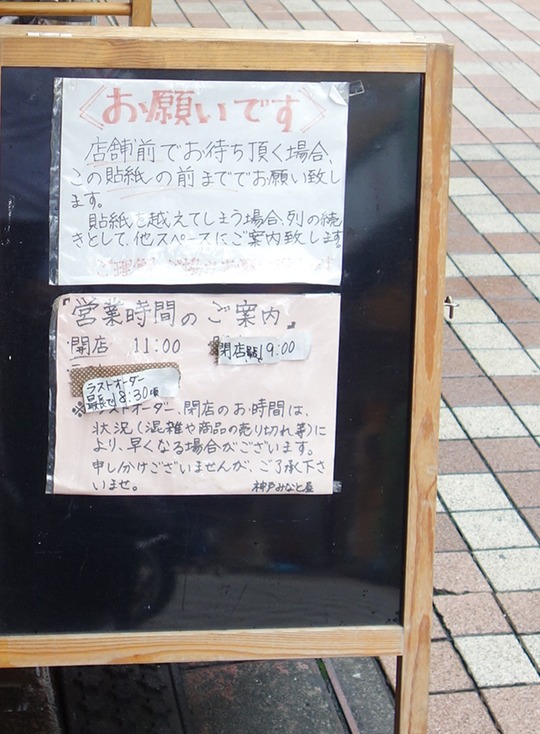 お願いです
店舗前でお待ち頂く場合、
この貼紙の前まででお願い致し
ます。
貼紙を越えてしまう場合、列の続
きとして、他スペースにご案内致します。
『営業時間のご案内』
開店 11:00
閉店 19:00
ラストオーダー
最長で18:30頃
※ラストオーダー、閉店のお時間は、
状況(混雑や商品の売り切れ等)に
より、早くなる場合がございます。
申し分けございませんが、ご了承下さ
いませ。 神戸みなと屋